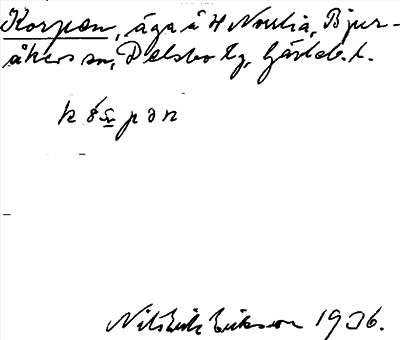 Korpen, äga å H Norrlia, Bjur-
åkers sn, Delsbo tg, Gävleb. l.
Nils Erik Eriksson 1936.